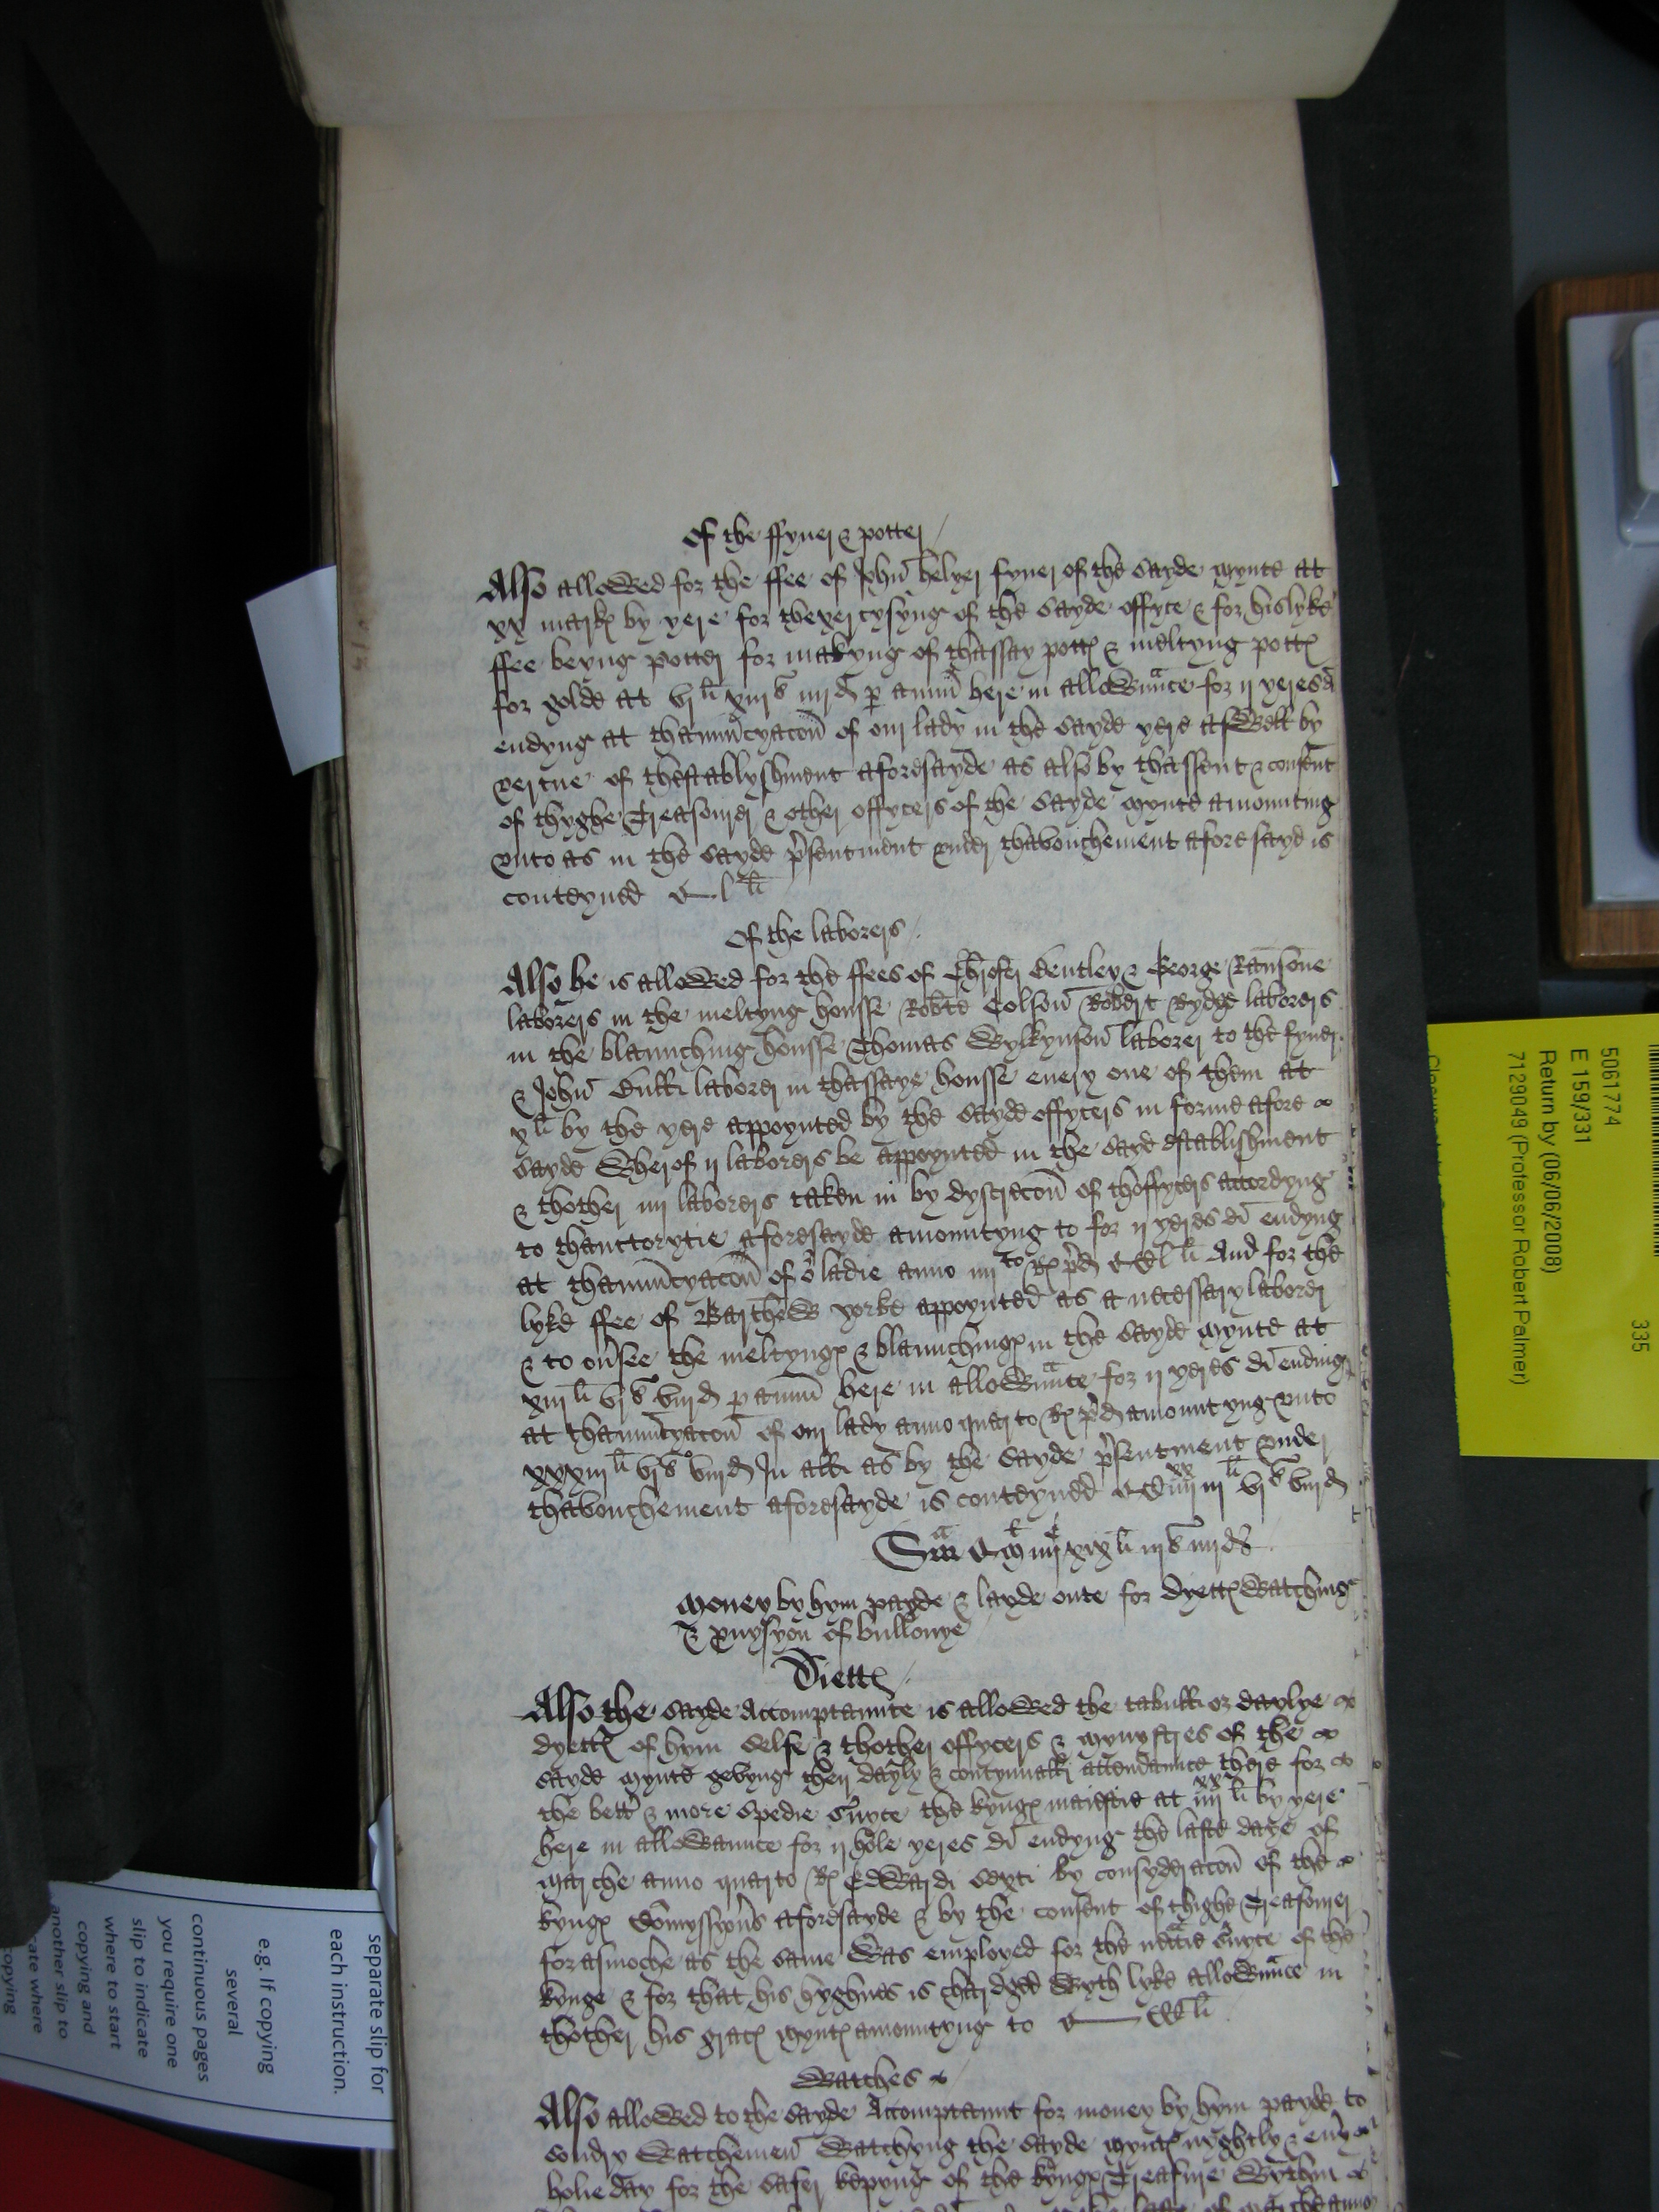 Of the ffyner & potter
Also allowed for the ffee of John helyer fyner of the sayde mynte at
xx markes by yere for thexercysyng of the sayde offyce & for his lyke
ffee beyng potter for makyng of thassay pottes & meltyng pottes
for golde at vj li xiij s iiij d p annu here in allowunce for ij yeres di
endyng at thannucyacon of our lady in the sayde yere aswell by
vertue of thestablyshment aforesayde as also by thassent & consent
of thyghe Treasourer & other offycers of the sayde mynte amounting
vnto as in the sayde psentment vnder thavouchement aforesayd is
conteyned l li
Of the laborers
Also he is allowed for the ffees of Chrofer Bentley & George Ransone
laborers in the meltyng housse Robte Colson Robert Rydge laborers
in the blaunching housse Thomas Wylkynson laborer to the fyner
& John Bull laborer in thassaye housse euery one of them at
x li by the yere appoynted by the sayde offycers in forme afore
sayde Wherof ij laborers be appoynted in the sayd establishment
& thother iiij laborers taken in by dyscrecon of thoffycers accordyng
to thauctorytie aforesayde amountyng to for ij yeres di endyng
at thannucyacon of or ladie anno iiij to R pd CL li And for the
lyke ffee of Barthew yorke appoynted as a necessary laborer
& to ousee the meltynges & blaunchinges in the sayde mynte at
xiij li vj s viij d p annu here in allowunce for ij yeres di ending
at thannucyacon of our lady anno quarto R pd amountyng vnto
xxxiij li vj s viij d In all as by the sayde psentment vnder
thavouchement aforesayde is conteyned C iiij xx iij li vj s viij d
Sma xix li iij s iiij d
Money by hym payde & layde oute for Dyettes Watching
& puysyon of bullonye
Diettes
Also the sayde Accomptaunte is allowed the tabull or daylye
dyettes of hym selfe & thother offycers & mynystres of the
sayde mynte gevyng their dayly & contynuall attendaunce there for
the bettr & more spedie suyce the kynges maiestie at iiij xx li by yere
here in allowaunce for ij hole yeres di endyng the laste daye of
marche anno quarto R Edwardi sexti by consyderacon of the
kynges Comyssyons aforesayde & by the consent of thighe Treasourer
forasmoche as the same was employed for the necie suyce of the
kynge & for that his hyghnes is chardged wyth lyke allowunce in
thother his graces myntes amountyng to CC li
Watches
Also allowed to the sayde Accomptaunt for money by hym payde to
sondry Watchemen Watchyng the sayde myntes nyghtly & euy
holie day for the safer kepyng of the kynges Treasure Wythin
5061774
E 159/331
Return by (06/06/2008)
7129049 (Professor Robert Palmer)
335
separate slip for
each instruction.
e.g. If copying
several
continuous pages
you require one
slip to indicate
where to start
copying and
another slip to
where
copying